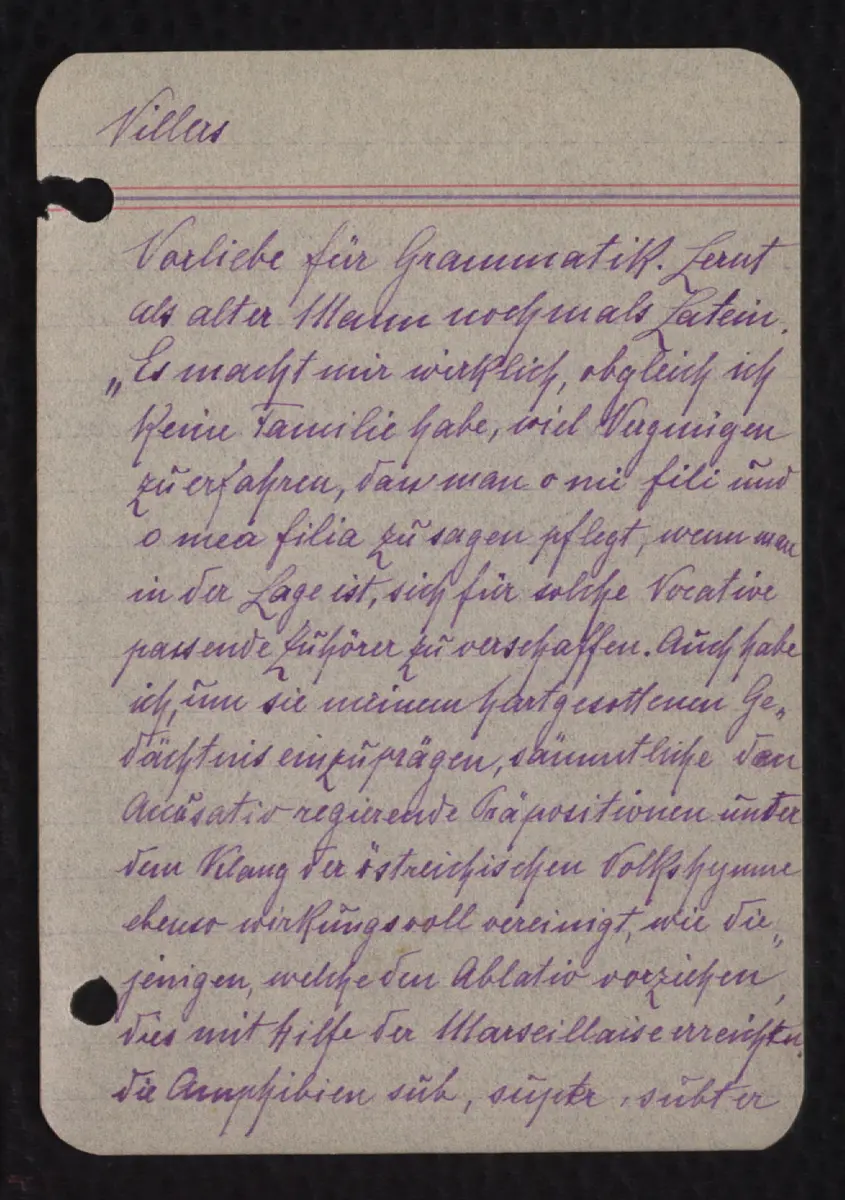 Villers
Vorliebe für Grammatik. Lernt
als alter Mann nochmals Latein.
„Es macht mir wirklich, obgleich ich
keine Familie habe, viel Vergnügen
zu erfahren, dass man o mi fili und
o mea filia zu sagen pflegt, wenn man
in der Lage ist, sich für solche Vocative
passende Zuhörer zu verschaffen. Auch habe
ich, um sie meinem hartgesottenen Ge„
dächtnis einzuprägen, sämmtliche den
Accusativ regierende Präpositionen unter
dem Klang der östreichischen Volkshymne
ebenso wirkungsvoll vereinigt, wie die„
jenigen, welche den Ablativ vorziehen,
dies mit Hilfe der Marseillaise erreichten.
die Amphibien sub, super, subter